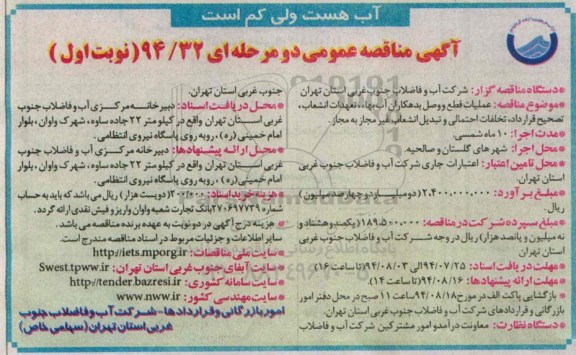 آب هست ولی کم است
آگهی مناقصه عمومی دو مرحله‌ای ۹۴/۳۲ (نوبت اول)
● دستگاه مناقصه گزار: شرکت آب و فاضلاب جنوب غربی استان تهران
● موضوع مناقصه: عملیات قطع و وصل بدهکاران آب بها، تعهدات انشعاب،
تصحیح قرارداد، تخلفات احتمالی و تبدیل انشعاب غیر مجاز به مجاز.
● مدت اجرا: ۱۰ ماه شمسی.
● محل اجرا: شهرهای گلستان و صالحیه.
● محل تامین اعتبار: اعتبارات جاری شرکت آب و فاضلاب جنوب غربی
استان تهران.
● مبلغ برآورد: ۲،۴۰۰،۰۰۰،۰۰۰ (دو میلیارد و چهارصد میلیون)
ریال.
● مبلغ سپرده شرکت در مناقصه: ۱۸۹،۵۰۰،۰۰۰ (یکصد و هشتاد و
نه میلیون و پانصد هزار) ریال در وجه شرکت آب و فاضلاب جنوب غربی
استان تهران
● مهلت دریافت اسناد: ۹۴/۰۷/۲۵ الی ۹۴/۰۸/۰۳ (تا ساعت ۱۶)
● مهلت ارائه پیشنهادها: ۹۴/۰۸/۱۶ (تا ساعت ۱۴).
● بازگشایی پاکت الف در مورخ ۹۴/۰۸/۱۸ ساعت ۱۱ صبح در محل دفتر امور
بازرگانی و قراردادهای شرکت آب و فاضلاب جنوب غربی استان تهران.
● دستگاه نظارت: معاونت درآمد و امور مشترکین شرکت آب و فاضلاب
جنوب غربی استان تهران.
● محل دریافت اسناد: دبیرخانه مرکزی آب و فاضلاب جنوب
غربی استان تهران واقع در کیلومتر ۲۲ جاده ساوه، شهرک واوان، بلوار
امام خمینی (ره)، روبه روی پاسگاه نیروی انتظامی.
● محل ارائه پیشنهادها: دبیرخانه مرکزی آب و فاضلاب جنوب
غربی استان تهران واقع در کیلومتر ۲۲ جاده ساوه، شهرک واوان، بلوار
امام خمینی (ره)، روبه روی پاسگاه نیروی انتظامی.
● هزینه خرید اسناد: ۲۰۰،۰۰۰ (دویست هزار) ریال می باشد که باید به حساب
بانک تجارت شعبه واوان واریز و فیش نقدی ارائه گردد.
● هزینه درج آگهی در دو نوبت به عهده برنده مناقصه می باشد.
سایر اطلاعات و جزئیات مربوط در اسناد مناقصه مندرج است.
● سایت ملی مناقصات: http://iets.mporg.ir
● سایت آبفای جنوب غربی استان تهران: Swest.tpww.ir
● سایت سامانه کشوری: http://tender.bazresi.ir
● سایت مهندسی کشور: www.nww.ir
امور بازرگانی و قراردادها - شرکت آب و فاضلاب جنوب
غربی استان تهران (سهامی خاص)